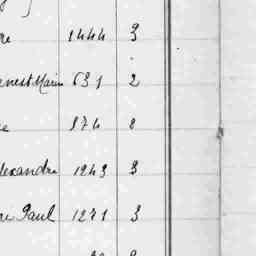 re 1444 3
ernest Marin 631 2
e 874 8
lexandre 1243 3
re Paul 1271 3